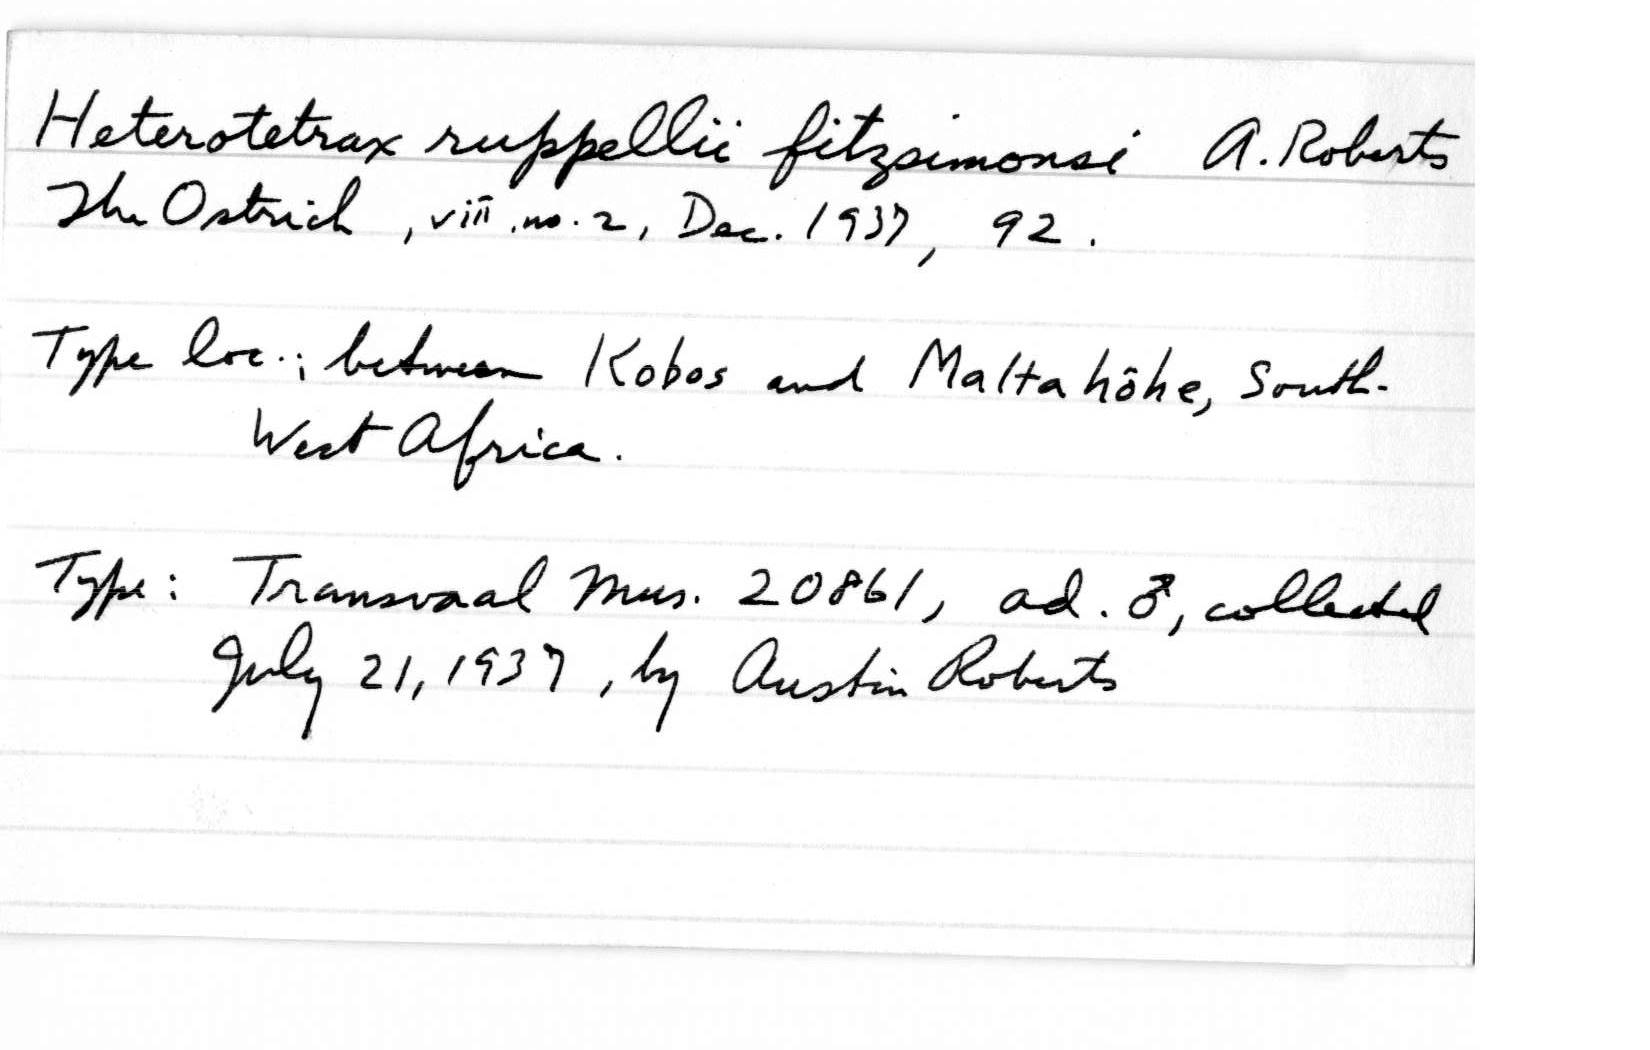 Heterotetrax ruppellii fitzsimonsi A. Roberts
The Ostrich, viii, no. 2, Dec. 1937, 92.
Type loc.; between Kobos and Maltahöhe, South-
West Africa.
Type: Transvaal Mus. 20861, ad. ♂, collected
July 21, 1937, by Austin Roberts